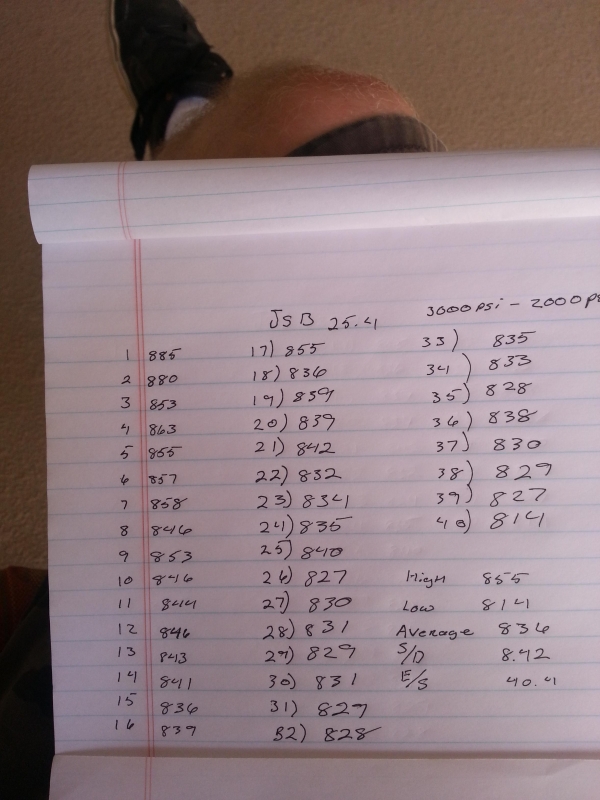 JSB 25.4
3000psi - 2000ps
1 885
2 880
3 853
4 863
5 855
6 857
7 858
8 846
9 853
10 846
11 844
12 846
13 843
14 841
15 836
16 839
17) 855
18) 836
19) 839
20) 839
21) 842
22) 832
23) 834
24) 835
25) 840
26) 827
27) 830
28) 831
29) 829
30) 831
31) 829
32) 828
33) 835
34) 833
35) 828
36) 838
37) 830
38) 829
39) 827
40) 814
High 855
Low 814
Average 836
S/D 8.42
E/S 40.4